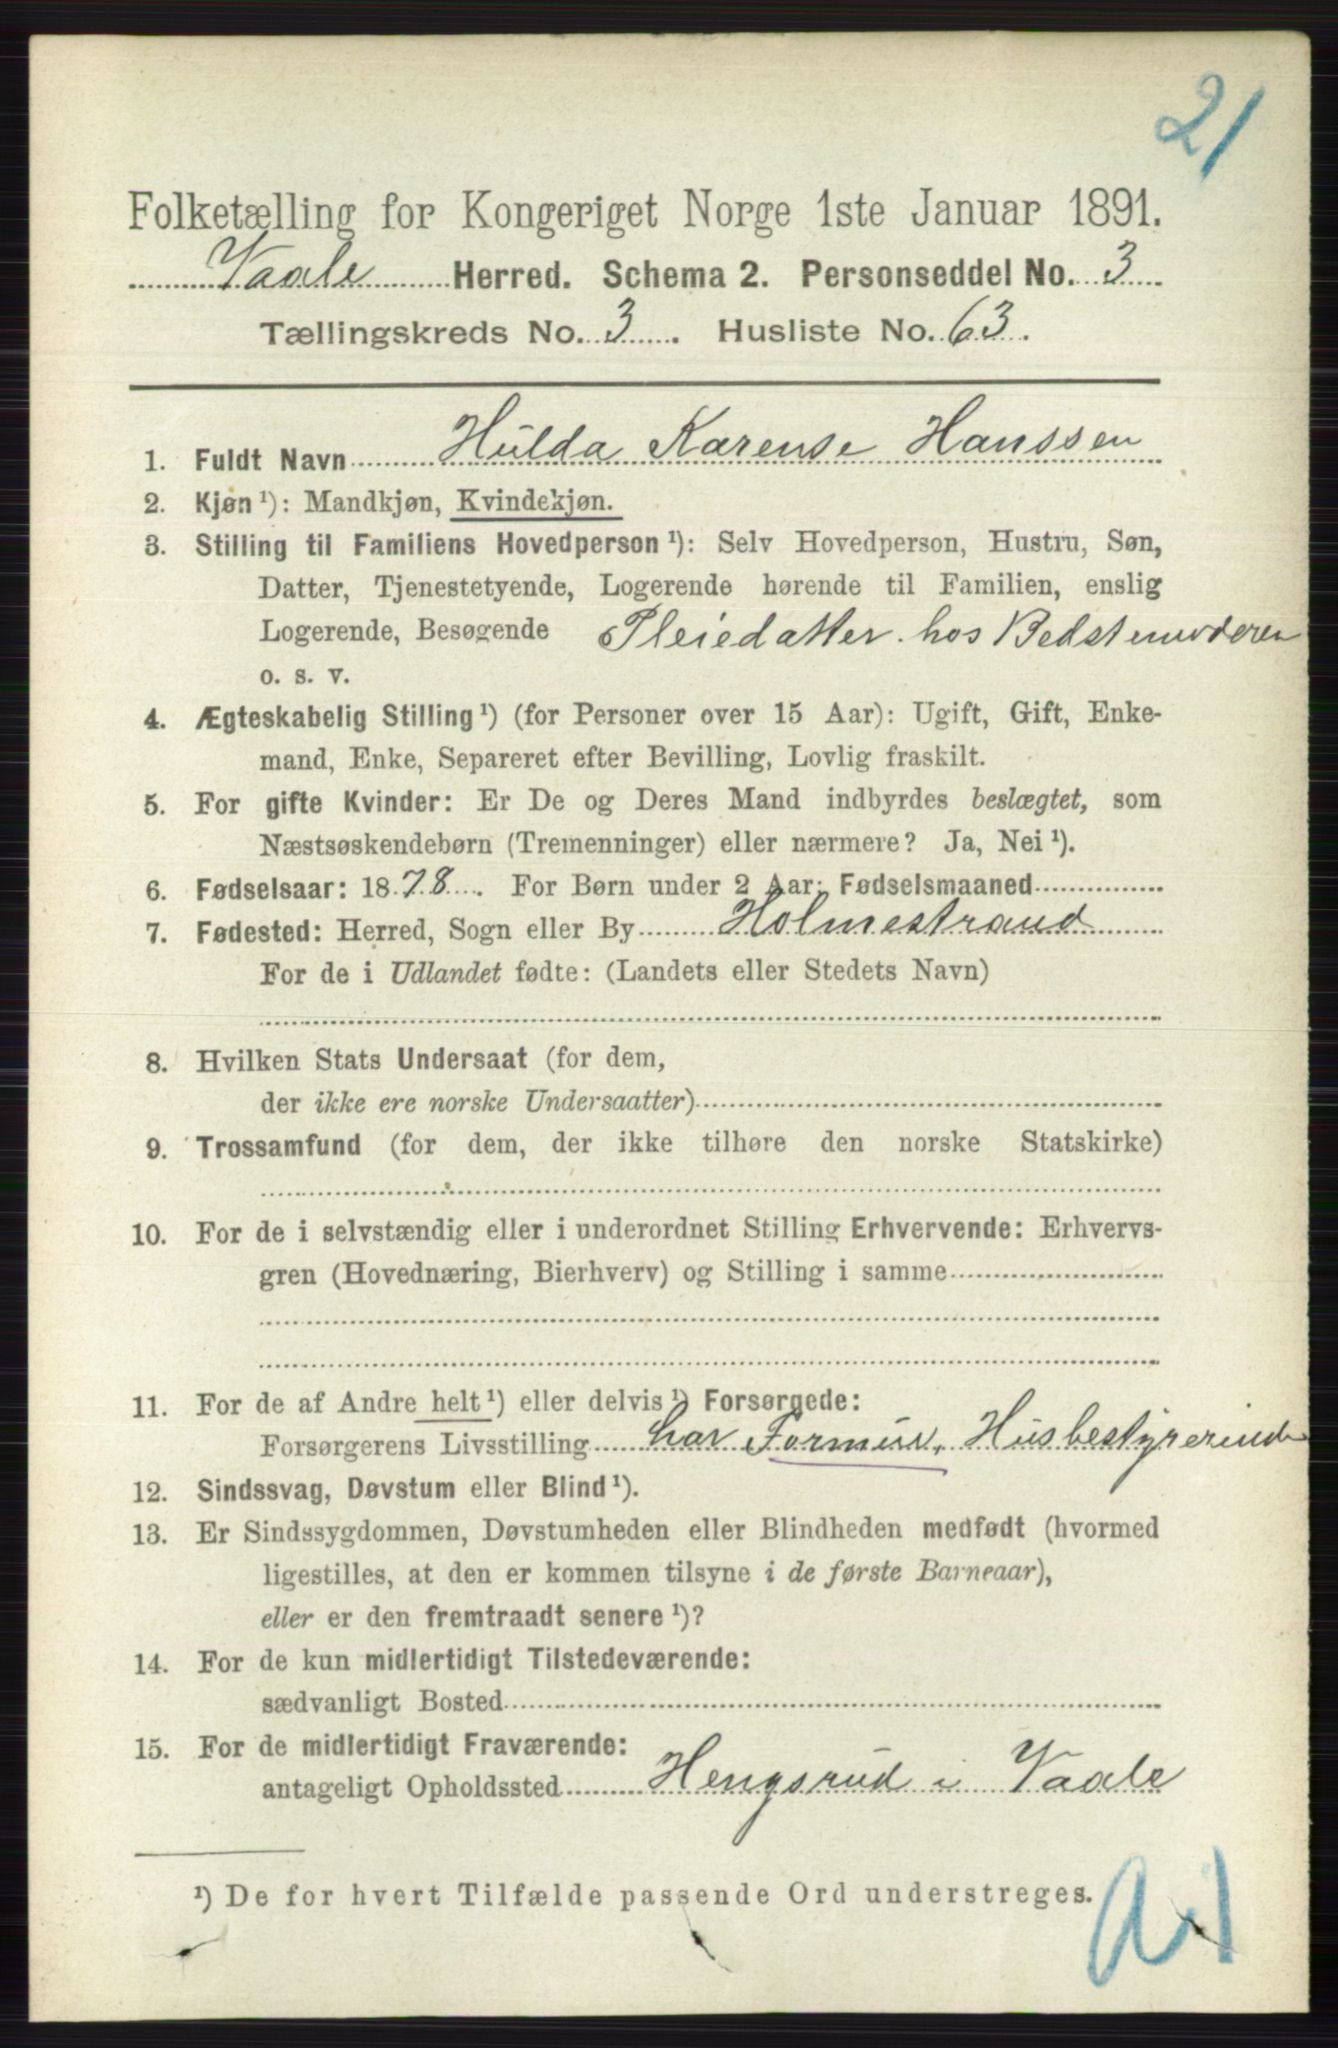 21
Folketælling for Kongeriget Norge 1ste Januar 1891.
Vaale Herred. Schema 2. Personseddel No. 3
Tællingskreds No. 3. Husliste No. 63.
1. Fuldt Navn Hulda Karense Hanssen
2. Kjøn ¹): Mandkjøn, Kvindekjøn.
3. Stilling til Familiens Hovedperson ¹): Selv Hovedperson, Hustru, Søn,
Datter, Tjenestetyende, Logerende hørende til Familien, enslig
Logerende, Besøgende Pleiedatter hos Bedstemoderen
o. s. v.
4. Ægteskabelig Stilling ¹) (for Personer over 15 Aar): Ugift, Gift, Enke-
mand, Enke, Separeret efter Bevilling, Lovlig fraskilt.
5. For gifte Kvinder: Er De og Deres Mand indbyrdes beslægtet, som
Næstsøskendebørn (Tremenninger) eller nærmere? Ja, Nei ¹).
6. Fødselsaar: 1878. For Børn under 2 Aar: Fødselsmaaned
7. Fødested: Herred, Sogn eller By Holmestrand
For de i Udlandet fødte: (Landets eller Stedets Navn)
8. Hvilken Stats Undersaat (for dem,
der ikke ere norske Undersaatter)
9. Trossamfund (for dem, der ikke tilhøre den norske Statskirke)
10. For de i selvstændig eller i underordnet Stilling Erhvervende: Erhvervs-
gren (Hovednæring, Bierhverv) og Stilling i samme
11. For de af Andre helt ¹) eller delvis ¹) Forsørgede:
Forsørgerens Livsstilling har Formue, Husbestyrerinde
12. Sindssvag, Døvstum eller Blind ¹).
13. Er Sindssygdommen, Døvstumheden eller Blindheden medfødt (hvormed
ligestilles, at den er kommen tilsyne i de første Barneaar),
eller er den fremtraadt senere ¹)?
14. For de kun midlertidigt Tilstedeværende:
sædvanligt Bosted
15. For de midlertidigt Fraværende:
antageligt Opholdssted Hengsrud i Vaale
¹) De for hvert Tilfælde passende Ord understreges.